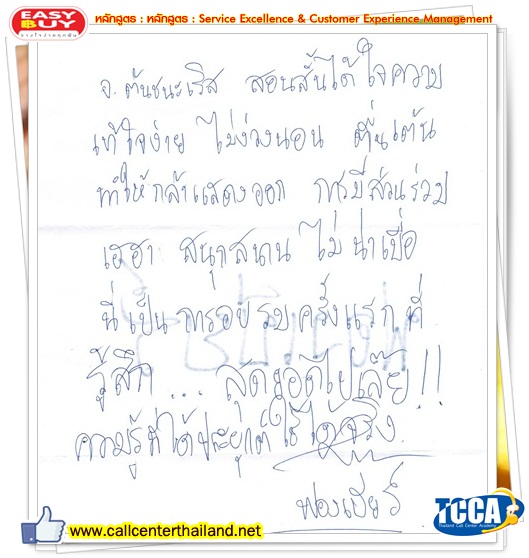 EASY BUY
หลักสูตร : หลักสูตร : Service Excellence & Customer Experience Management
อ. ต้นชนะเริส สอนสั้นได้ใจความ
เข้าใจง่าย ไม่ง่วงนอน ตื่นเต้น
ทำให้กล้าแสดงออก การมีส่วนร่วม
เฮฮา สนุกสนาน ไม่น่าเบื่อ
นี่เป็นการอบรมครั้งแรกที่
รู้สึก... สุดยอดไปเล้ย!!
ความรู้ที่ได้ประยุกต์ใช้ได้จริง
ฟองเบียร์
TCCA
Thailand Call Center Academy
www.callcenterthailand.net